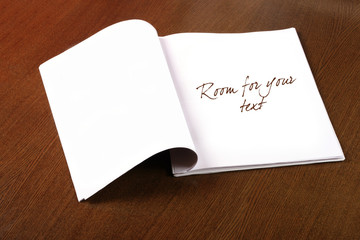 Room for your
text